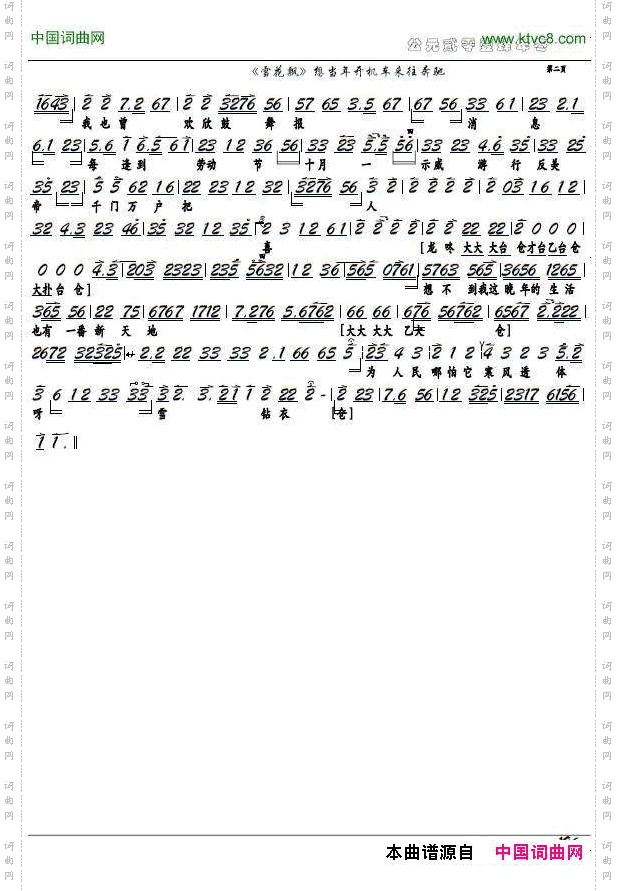 中国词曲网
www.ktvc8.com
《雪花飘》想当年开机车来往奔驰
第二页
1643 | 2 2 7.2 67 | 2 2 3276 56 | 57 65 3.5 67 | 67 56 33 61 | 23 2.1
我也曾 欢欣鼓 舞报 消 息
6.1 23 | 5.6 1 6.5 61 | 23 12 36 56 | 33 23 5.5 56 | 33 23 4.6 35 | 33 25
每 逢到 劳动 节 十月 一 示威 游行 反美
35 23 | 5 5 62 16 | 22 23 12 32 | 3276 56 3 2 | 2 2 2 2 | 2 03 16 12
帝 千门万 户把 人
32 4.3 23 46 | 35 32 12 35 | 2 3 12 61 | 2 2 2 2 | 2 2 22 22 | 2 0 0 0
喜 [龙咚 大大 大台 仓才台乙台仓
0 0 0 4.3 | 203 2323 235 5632 | 12 36 565 0761 | 5763 565 | 3656 1265
大扑台 仓] 想 不 到我这 晚 年的 生 活
365 56 | 22 75 | 6767 1712 | 7.276 5.6762 | 66 66 | 676 56762 | 6567 2.222
也有 一番 新 天 地 [大大 大大 乙大 仓]
2672 32325 2.2 22 33 33 2.1 66 65 5 | 23 4 3 | 2 1 2 | 4 3 2 3 | 5.2
为 人 民 哪怕它 寒 风 透 体
3 6 12 33 33 | 32. 3. 211 2 22 2 - | 2 23 | 7.6 56 | 12 325 | 2317 6156
呀 雪 钻 衣 [仓]
1 1. ‖
本曲谱源自 中国词曲网
词曲网